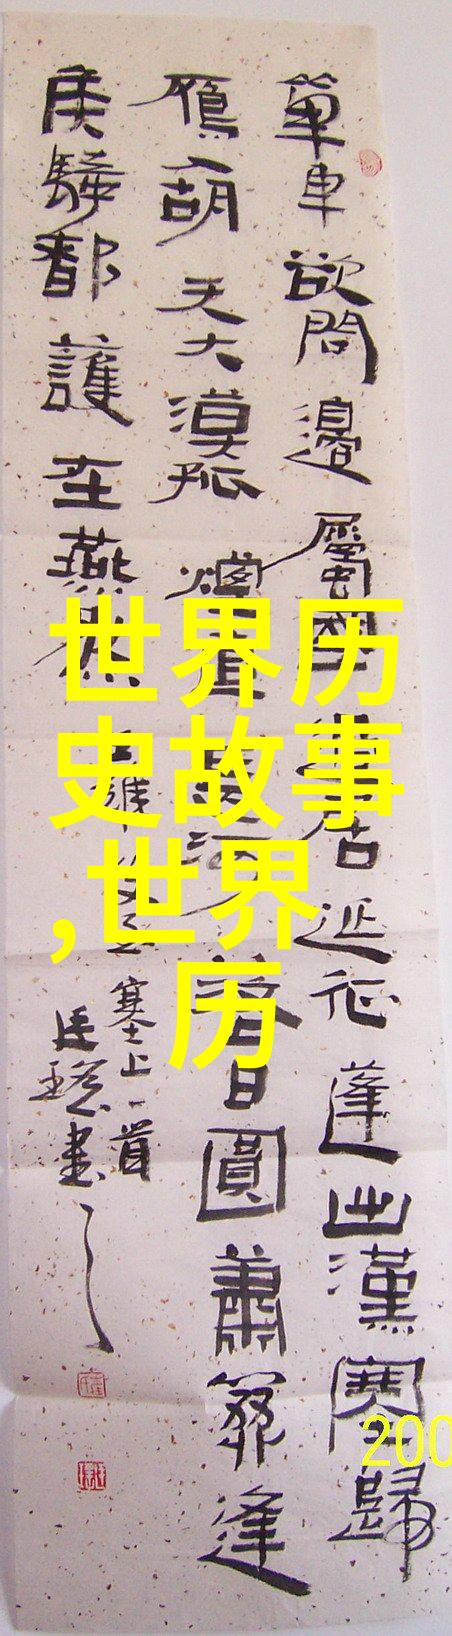 單車欲問邊屬國過居延征蓬出漢塞歸
鴈入胡天大漠孤煙直長河落日圓蕭關逢
候騎都護在燕然
王維使至塞上一首
書
世界历
史故事
,世界
历
200